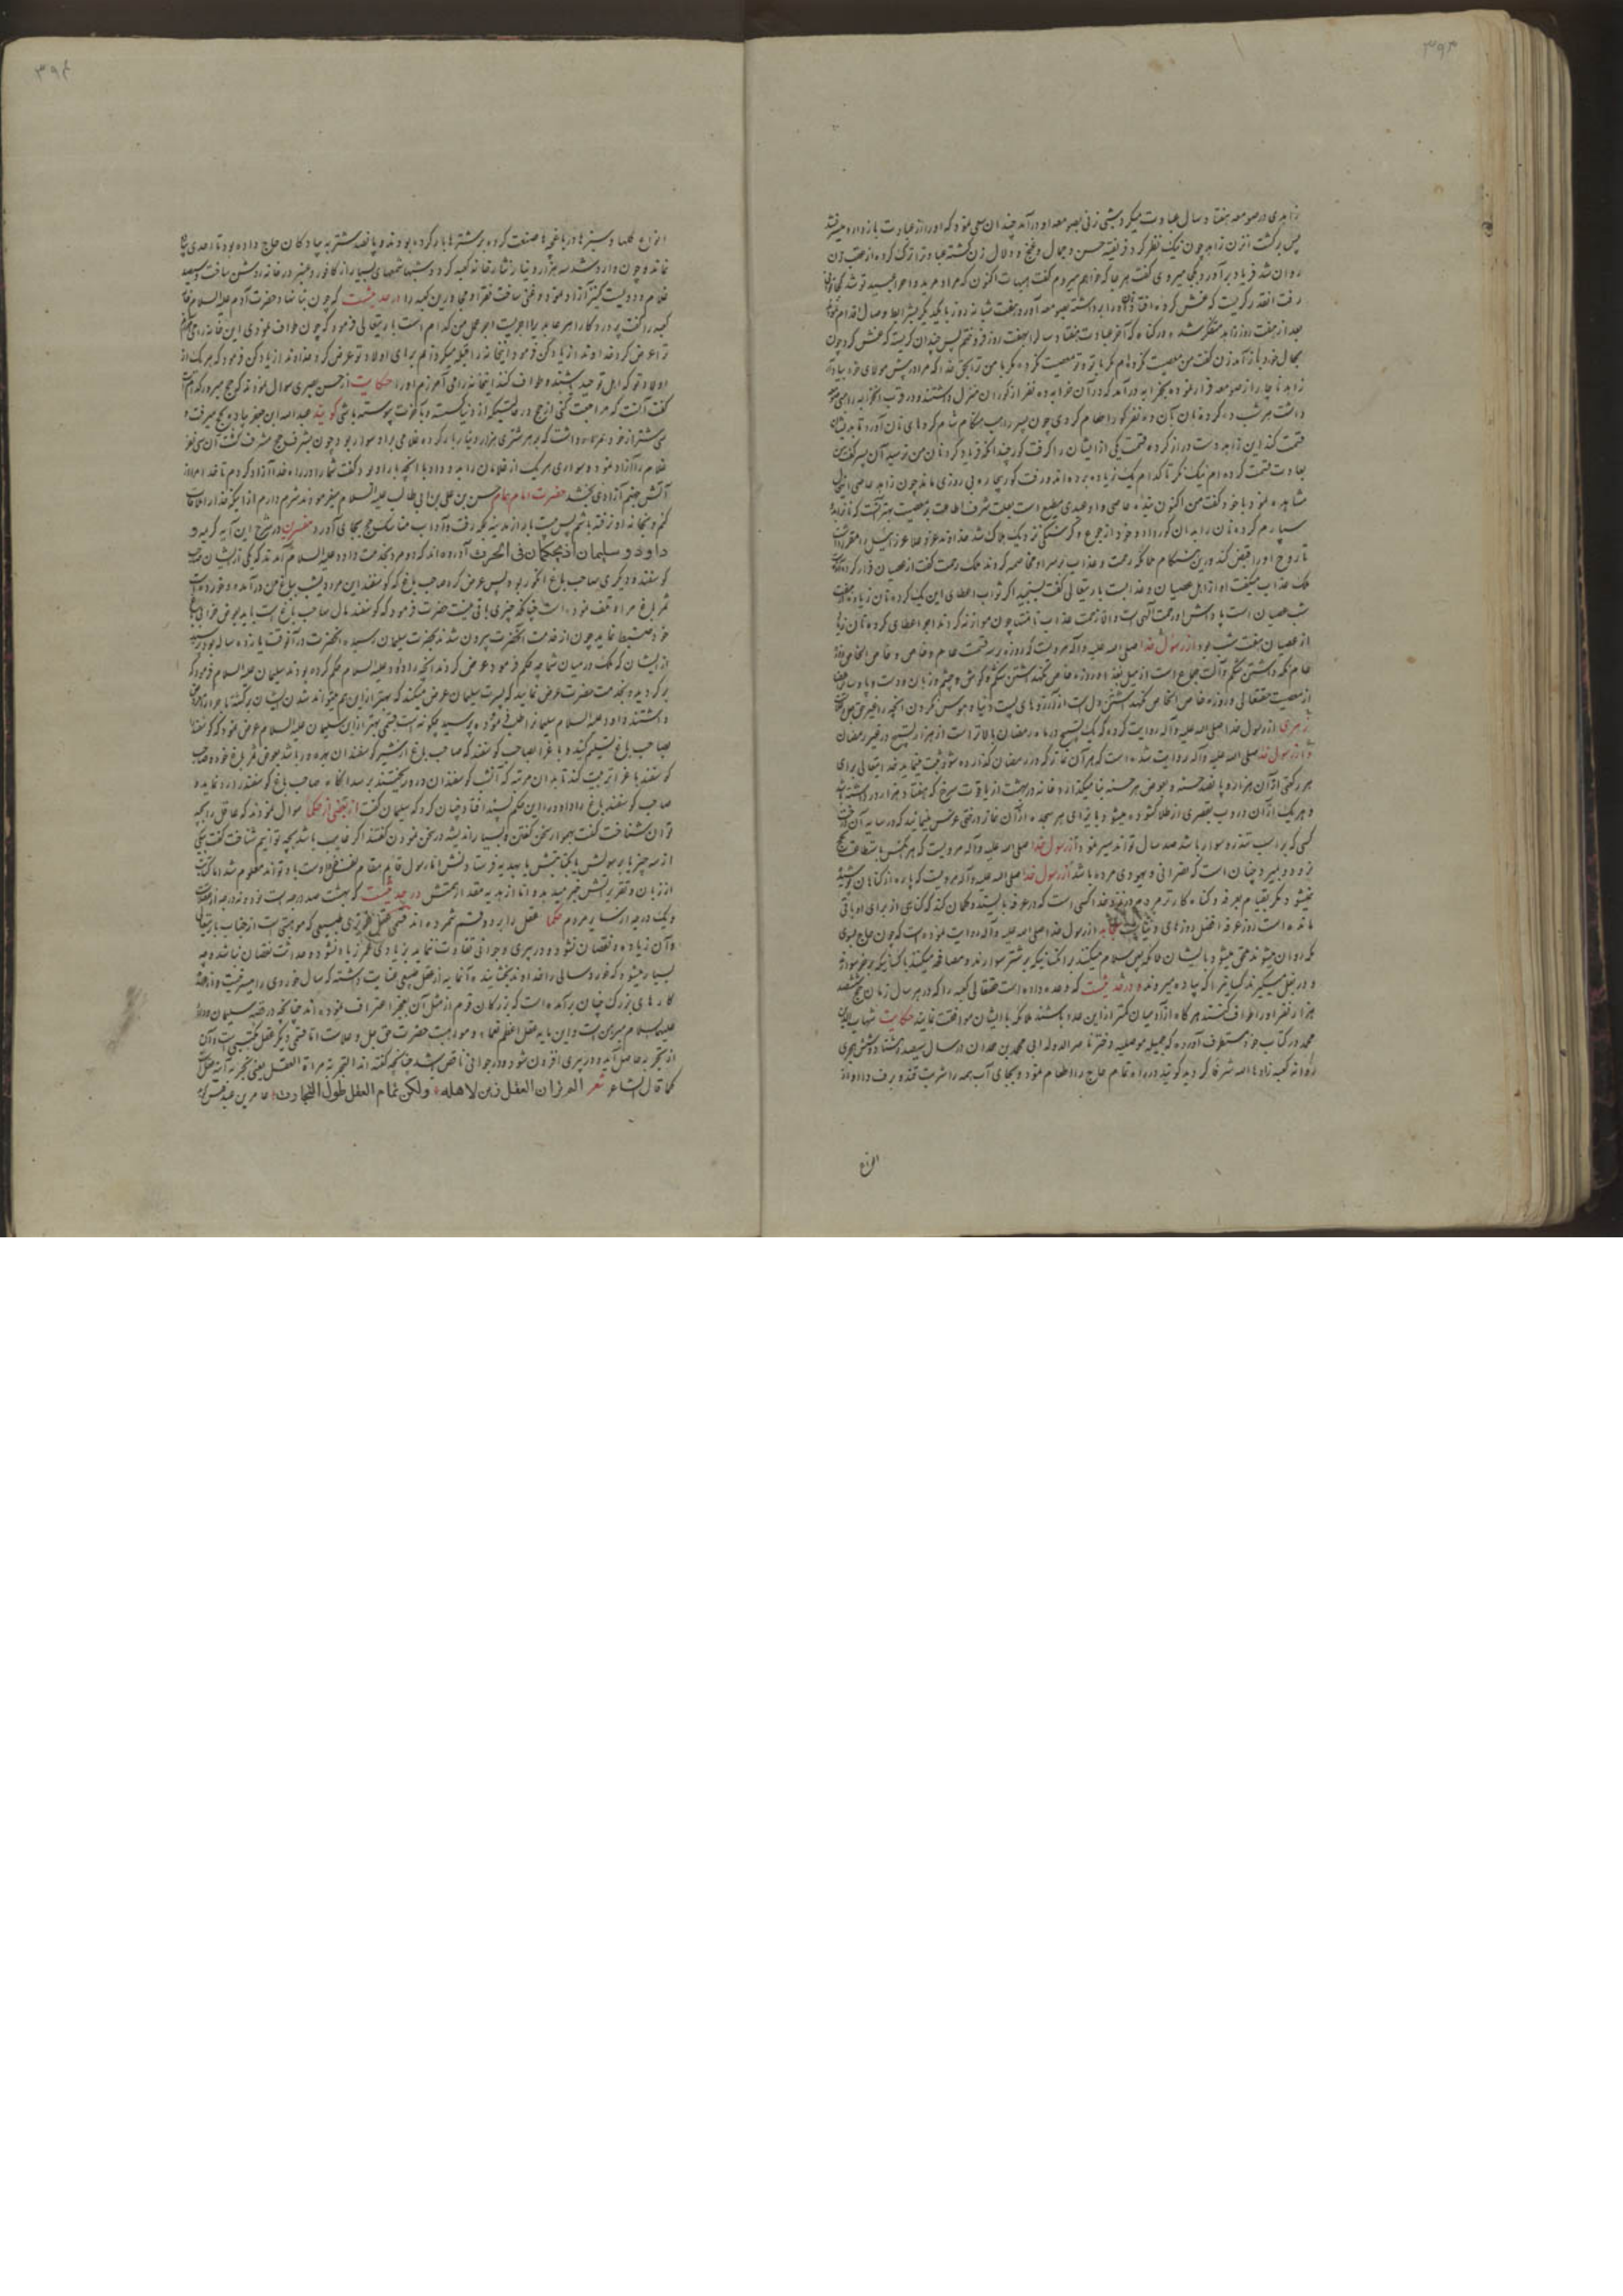 ۳۹۳
زاهدی در صومعه هفتاد سال عبادت میکرد شبی زنی بصومعه او درآمد چندان سعی نمود که او را از عبادت باز دارد میسر نشد
پس برگشت از زن زاهد چون نیک نظر کرد فریفته حسن و جمال و غنج و دلال زن گشته عبادت را ترک کرده از عقب زن
روان شد فریاد برآورد بکجا میروی گفت هر جا که خواهم میروم گفت هیهات اکنون که مراد مرید و احرار عبید تو شد کجا توانی
رفت آنقدر گریست که غش کرده افتاد زاهد او را برداشته بصومعه آورد هفت شبانه روز با یکدیگر بشرایط وصال اقدام نمودند
بعد از هفت روز زاهد متفکر شده در گناه که آخر عبادت هفتاد ساله را بهفت روز فروختم پس چندان گریست که غش کرد چون
بحال خود باز آمد زن گفت من معصیت نکرده ام مگر با تو و تو معصیت نکرده مگر با من ترا بحق خدا که مرا در پیش مولای خود یاد آر
زاهد ناچار از صومعه فرار نموده بخرابه درآمد که در آن خرابه ده نفر از کوران منزل داشتند و در قرب آنخرابه راهبی
داشت هر شب ده گرده نان بآن ده نفر کور اطعام کردی چون پسر راهب هنگام شام گرده های نان آورد تا بدیشان
قسمت کند این زاهد دست دراز کرده قسمت یکی از ایشان را گرفت کور چندانکه فریاد کرد نان من نرسید آن پسر گفت من
بعادت قسمت کرده ام نیک نگر تا کدام یک زیاده برده اند و رفت کور بیچاره بی روزی ماند چون زاهد عاصی
مشاهده نمود با خود گفت من اکنون بنده عاصی و او عبدی مطیع است بعلت شرف اطاعت بر معصیت بهتر آنست که نان بدو
سپارم گرده نان را بدان کور داد و خود از جوع و گرسنگی نزدیک هلاک شد خداوند عز و علا عزرائیل را مقرر داشت
تا روح او را قبض کند در این هنگام ملائکه رحمت و عذاب بر سر او مخاصمه کردند ملک رحمت گفت از عصیان فرار کرده
ملک عذاب میگفت او از اهل عصیان و عذابست باریتعالی گفت بسنجید اگر ثواب اعطای این یک گرده نان زیاده بهفت
شب عصیان است پاداش او رحمت آلهی است و الا زحمت عذاب نامتناهی چون موازنه کردند اجر اعطای گرده نان زیاده
از عصیان هفت شب بود از رسول خدا صلی الله علیه و آله مرویست که روزه بر سه قسمت عام و خاص و خاص الخاص
عام نگه داشتن شکم و آلت جماع است از میل بغذا و روزه خاص نگهداشتن شکم و گوش و چشم و زبان و دست و پا و سایر اعضا
از معصیت حقتعالی و روزه خاص الخاص نگهداشتن دل است از آرزوهای پست دنیا و هوس کردن آنچه را غیر حق جل
زهری از رسول خدا صلی الله علیه و آله روایت کرده که یک تسبیح در ماه رمضان بالاتر است از هزار تسبیح در غیر رمضان
و از رسول خدا صلی الله علیه و آله روایت شده است که هر آن نماز که در رمضان گذارده شود ثبت مینماید خدایتعالی برای
هر رکعتی از آن هزار و پانصد حسنه و بعوض هر حسنه بنا میگذارد خانه در بهشت از یاقوت سرخ که هفتاد هزار در داشته باشد
و هر یک از آن در وب بقصری از طلا گشوده میشود و بازای هر سجده از آن نماز درختی غرس مینماید که در سایه آن درخت
کسی که بر اسب تندرو سوار باشد صد سال تواند سیر نمود از رسول خدا صلی الله علیه و آله مرویست که هر کس با استطاعت حج
نرود و بمیرد چنان است که نصرانی و یهودی مرده باشد از رسول خدا صلی الله علیه و آله مرویست که پاره از گناهان بخشیده
نمیشود مگر بقیام بعرفه و گناه کارترین مردم در نزد خدا کسی است که در عرفه بایستد و گمان کند که گناهی از برای او باقی
مانده است و روز عرفه افضل روزهای دنیاست مجاهد از رسول خدا صلی الله علیه و آله روایت نموده است که چون حاج بسوی
مکه روان میشوند حق میشود بایشان ملائکه پس سلام میکنند بر آنکسانیکه بر شتر سوارند و مصافحه میکنند با کسانیکه بر خر سوارند
و در بغل میگیرند کسانی را که پیاده میروند و در حدیثست که وعده داده است حقتعالی کعبه را که در هر سال زمان حج ششصد
هزار نفر او را طواف کنند هرگاه از آدمیان کمتر از این عدد باشند ملائکه با ایشان موافقت نمایند حکایت شهاب الدین
محمد در کتاب خود مستطرف آورده که جمیله موصلیه دختر ناصر الدوله ابی محمد بن حمدان در سال سیصد و هشتاد و شش هجری
روانه کعبه زادها الله شرفا گردید گویند در راه تمام حاج را اطعام نمود و بجای آب همه را شربت قند و برف داد و از
انواع
۳۹۴
انواع گلها و سبزه ها در باغچه ها صنعت کرده بر شترها بار کرده بودند و پانصد شتر به پیادگان حاج داده بود تا احدی پیاده
نماند و چون وارد شد سه هزار دینار نثار خانه کعبه کرد و شبها شمعهای بسیار از کافور و عنبر در خانه روشن ساخت و سیصد
غلام و دویست کنیز آزاد نمود و غنی ساخت فقرا و مجاورین کعبه را در حدیثست که چون بنا نهاد حضرت آدم علیه السلام خانه
کعبه را گفت پروردگارا هر عابد را اجریست اجر عمل من کدام است باریتعالی فرمود که چون طواف نمودی این خانه را می آمرزم
ترا عرض کرد خداوندا زیاد کن فرمود اینخانه را قبله میگردانم برای اولاد تو عرض کرد خداوندا زیاد کن فرمود که هر یک از
اولاد تو که اهل توحید باشند و طواف کنند اینخانه را می آمرزم او را حکایت از حسن بصری سؤال نمودند که حج مبرور کدام است
گفت آنست که مراجعت کنی از حج در حالتیکه از دنیا گسسته و بآخرت پیوسته باشی گویند عبدالله ابن جعفر پیاده بحج میرفت و
سی شتر از خود همراه داشت که بر هر شتری هزار دینار بار کرده غلامی بر او سوار بود چون بشرف حج مشرف گشت آن سی نفر
غلام را آزاد نمود و سواری هر یک از غلامان را بدو داد با آنچه بار او بود و گفت شما را در راه خدا آزاد کردم تا خدا مرا از
آتش جهنم آزادی بخشد حضرت امام همام حسن بن علی بن ابی طالب علیه السلام میفرمودند شرم دارم از اینکه خدا را ملاقات
کنم و بخانه او نرفته باشم پس بیست بار از مدینه بمکه رفت و آداب مناسک حج بجای آورد مفسرین در شرح این آیه کریمه و
داود و سلیمان اذ یحکمان فی الحرث آورده اند که دو مرد بخدمت داود علیه السلام آمدند که یکی از ایشان صاحب
گوسفند و دیگری صاحب باغ انگور بود پس عرض کرد صاحب باغ که گوسفند این مرد دیشب بباغ من درآمده و خورده است
ثمر باغ مرا و تلف نموده است چنانکه چیزی باقی نیست حضرت فرمود که گوسفند مال صاحب باغ است باید بعوض خرابی باغ
خود ضبط نماید چون از خدمت آنحضرت بیرون شدند بحضرت سلیمان رسیده آنحضرت در آنوقت یازده ساله بود پرسید
از ایشان که ملک در میان شما چه حکم فرمود عرض کردند آنچه را داود علیه السلام حکم کرده بودند سلیمان علیه السلام فرمود که
برگردید و بخدمت حضرت عرض نمایید که پسرت سلیمان عرض میکند که بهتر از این هم میتواند شد ایشان برگشته ماجرا را معروض
داشتند داود علیه السلام سلیمان را طلب فرموده پرسید چگونه است قسمی بهتر از این سلیمان علیه السلام عرض نمود که گوسفند را
بصاحب باغ تسلیم کند و باغ را بصاحب گوسفند که صاحب باغ از شیر گوسفندان بهره ور باشد بعوض ثمر باغ خود و صاحب
گوسفند باغ را تربیت کند تا بدان مرتبه که آنشب گوسفندان در او ریختند برسد آنگاه صاحب باغ گوسفند را رد نماید و
صاحب گوسفند باغ را داود را این حکم پسند افتاد و چنان کرد که سلیمان گفت از بعضی از حکما سؤال نمودند که عاقل را بچه
توان شناخت گفت بهموار سخن گفتن و بسیار اندیشه در سخن نمودن گفتند اگر غایب باشد بچه توانیم شناخت گفت بیکی
از سه چیز یا برسولش یا بکتابتش یا بهدیه فرستادنش اما رسول قایم مقام نفس اوست
از زبان و تقریرش خبر میدهد و اما از هدیه مقدار همتش در حدیثست که بهشت صد درجه است نود و نه درجه از عقلاست
و یک درجه از سایر مردم حکما عقل را بر دو قسم شمرده اند قسمی عقل غریزی طبیعی که موهبتی است از جناب باریتعالی
و آن زیاده و نقصان نشود و در پیری و جوانی تفاوت ننماید بزیادتی عمر زیاد نشود و حداثت نقصان نیابد و چه
بسیار میشود که خورد سالی را خداوند بخشاینده آنمایه از عقل طبیعی عنایت داشته که سال خوردی را میسر نیست و از عهده
کارهای بزرگ چنان برآمده است که بزرگان قوم از مثل آن بعجز اعتراف نموده اند چنانچه در قصه سلیمان و داود
علیهما السلام مبرهن است و این مایه عقل اعظم نعماء و مواهب حضرت حق جل و علا ست اما قسمی دیگر عقل مکتسبی است و آن
از تجربه حاصل آید و در پیری افزون شود و در جوانی ناقص باشد چنانچه گفته اند التجربه مرآة العقل یعنی تجربه آینه عقل است
کما قال الشاعر شعر الم تر ان العقل زین لاهله ولکن تمام العقل طول التجارب عامر بن عبد قیس گفته